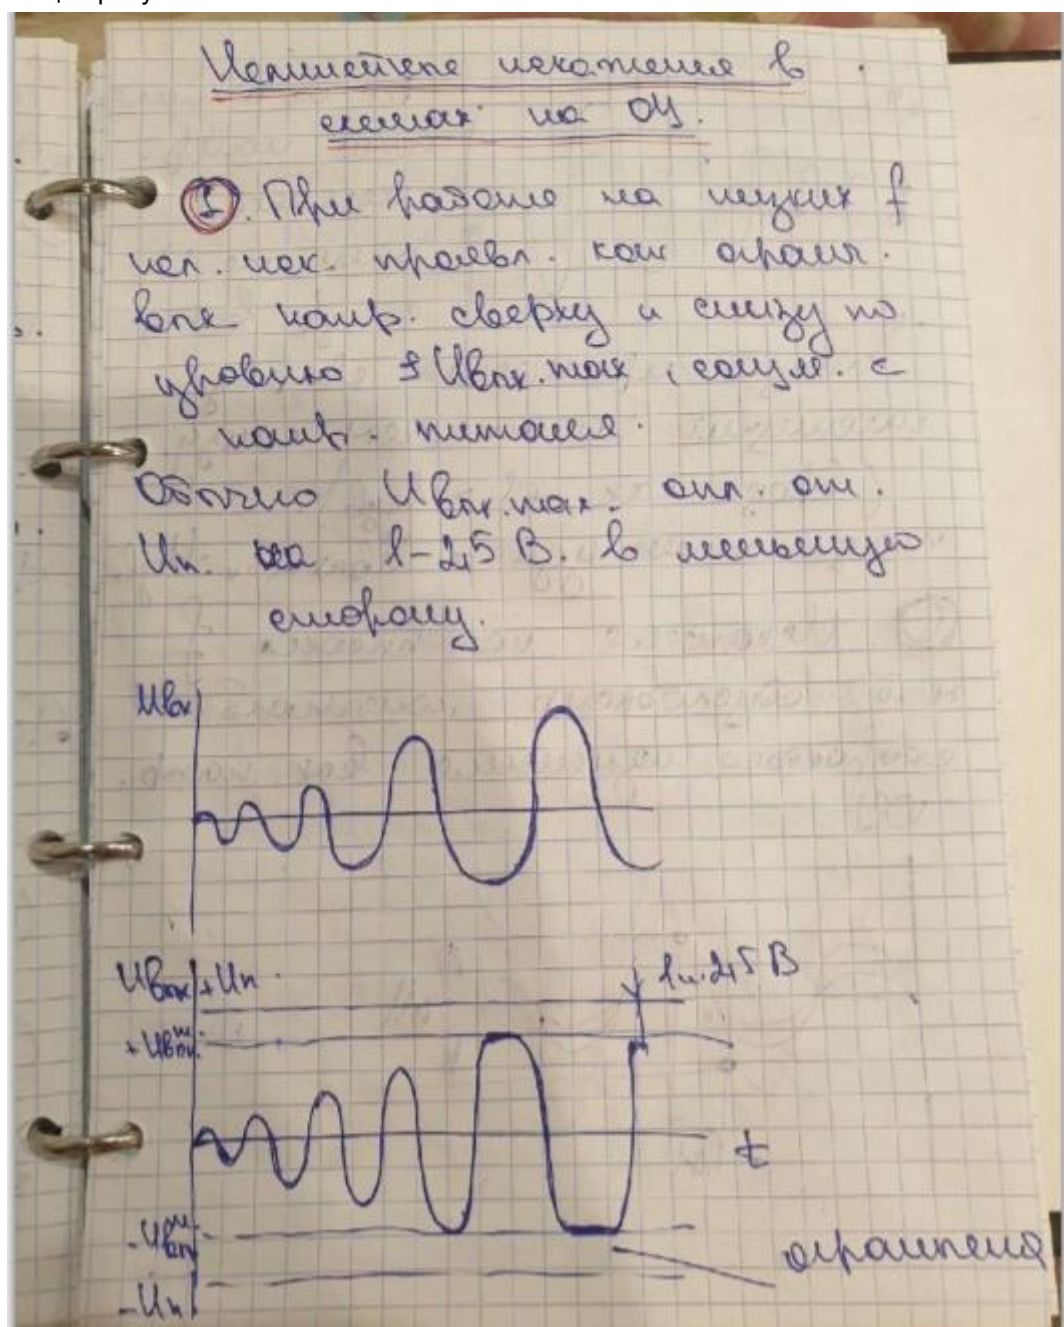 Нелинейные искажения в
схемах на ОУ.
①. При работе на низких f
нел. иск. проявл. как огранич.
вых напр. сверху и снизу по
уровню ± Uвых.max, соизм. с
напр. питания.
Обычно Uвых.max. отл. от.
Uп. на 1-2,5 В. в меньшую
сторону.
Uвх
Uвых +Uп.
1...2,5 В
+Uвых m
t
-Uвых m
ограничения
-Uп